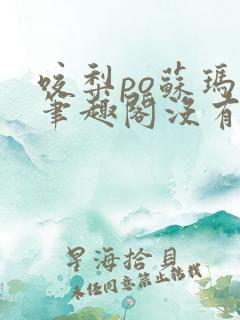 咬梨po蘇瑪
筆趣閣沒有
星海拾貝
未經同意禁止轉載